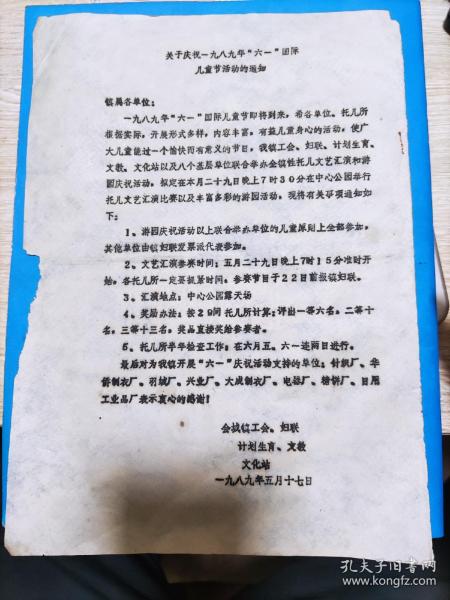 关于庆祝一九八九年“六一”国际
儿童节活动的通知
镇属各单位：
一九八九年“六一”国际儿童节即将到来，希各单位、托儿所
根据实际，开展形式多样，内容丰富，有益儿童身心的活动，使广
大儿童能过一个愉快而有意义的节日，我镇工会、妇联、计划生育、
文教、文化站以及八个基层单位联合举办全镇性托儿文艺汇演和游
园庆祝活动，拟定在本月二十九日晚上7时30分在中心公园举行
托儿文艺汇演比赛以及丰富多彩的游园活动。现将有关事项通知如
下：
1、游园庆祝活动以上联合举办单位的儿童原则上全部参加，
其他单位由镇妇联发票派代表参加。
2、文艺汇演参赛时间：五月二十九日晚上7时15分准时开
始，各托儿所一定要抓紧时间，参赛节目于22日前报镇妇联。
3、汇演地点：中心公园露天场
4、奖励办法：按29间托儿所计算；评出一等六名，二等十
名，三等十三名，奖品直接奖给参赛者。
5、托儿所半年检查工作：在六月五、六一连两日进行。
最后对为我镇开展“六一”庆祝活动支持的单位：针织厂、华
侨制衣厂、羽绒厂、兴业厂、大成制衣厂、电器厂、糖饼厂、日用
工业品厂表示衷心的感谢！
会城镇工会、妇联
计划生育、文教
文化站
一九八九年五月十七日
孔夫子旧书网
www.kongfz.com